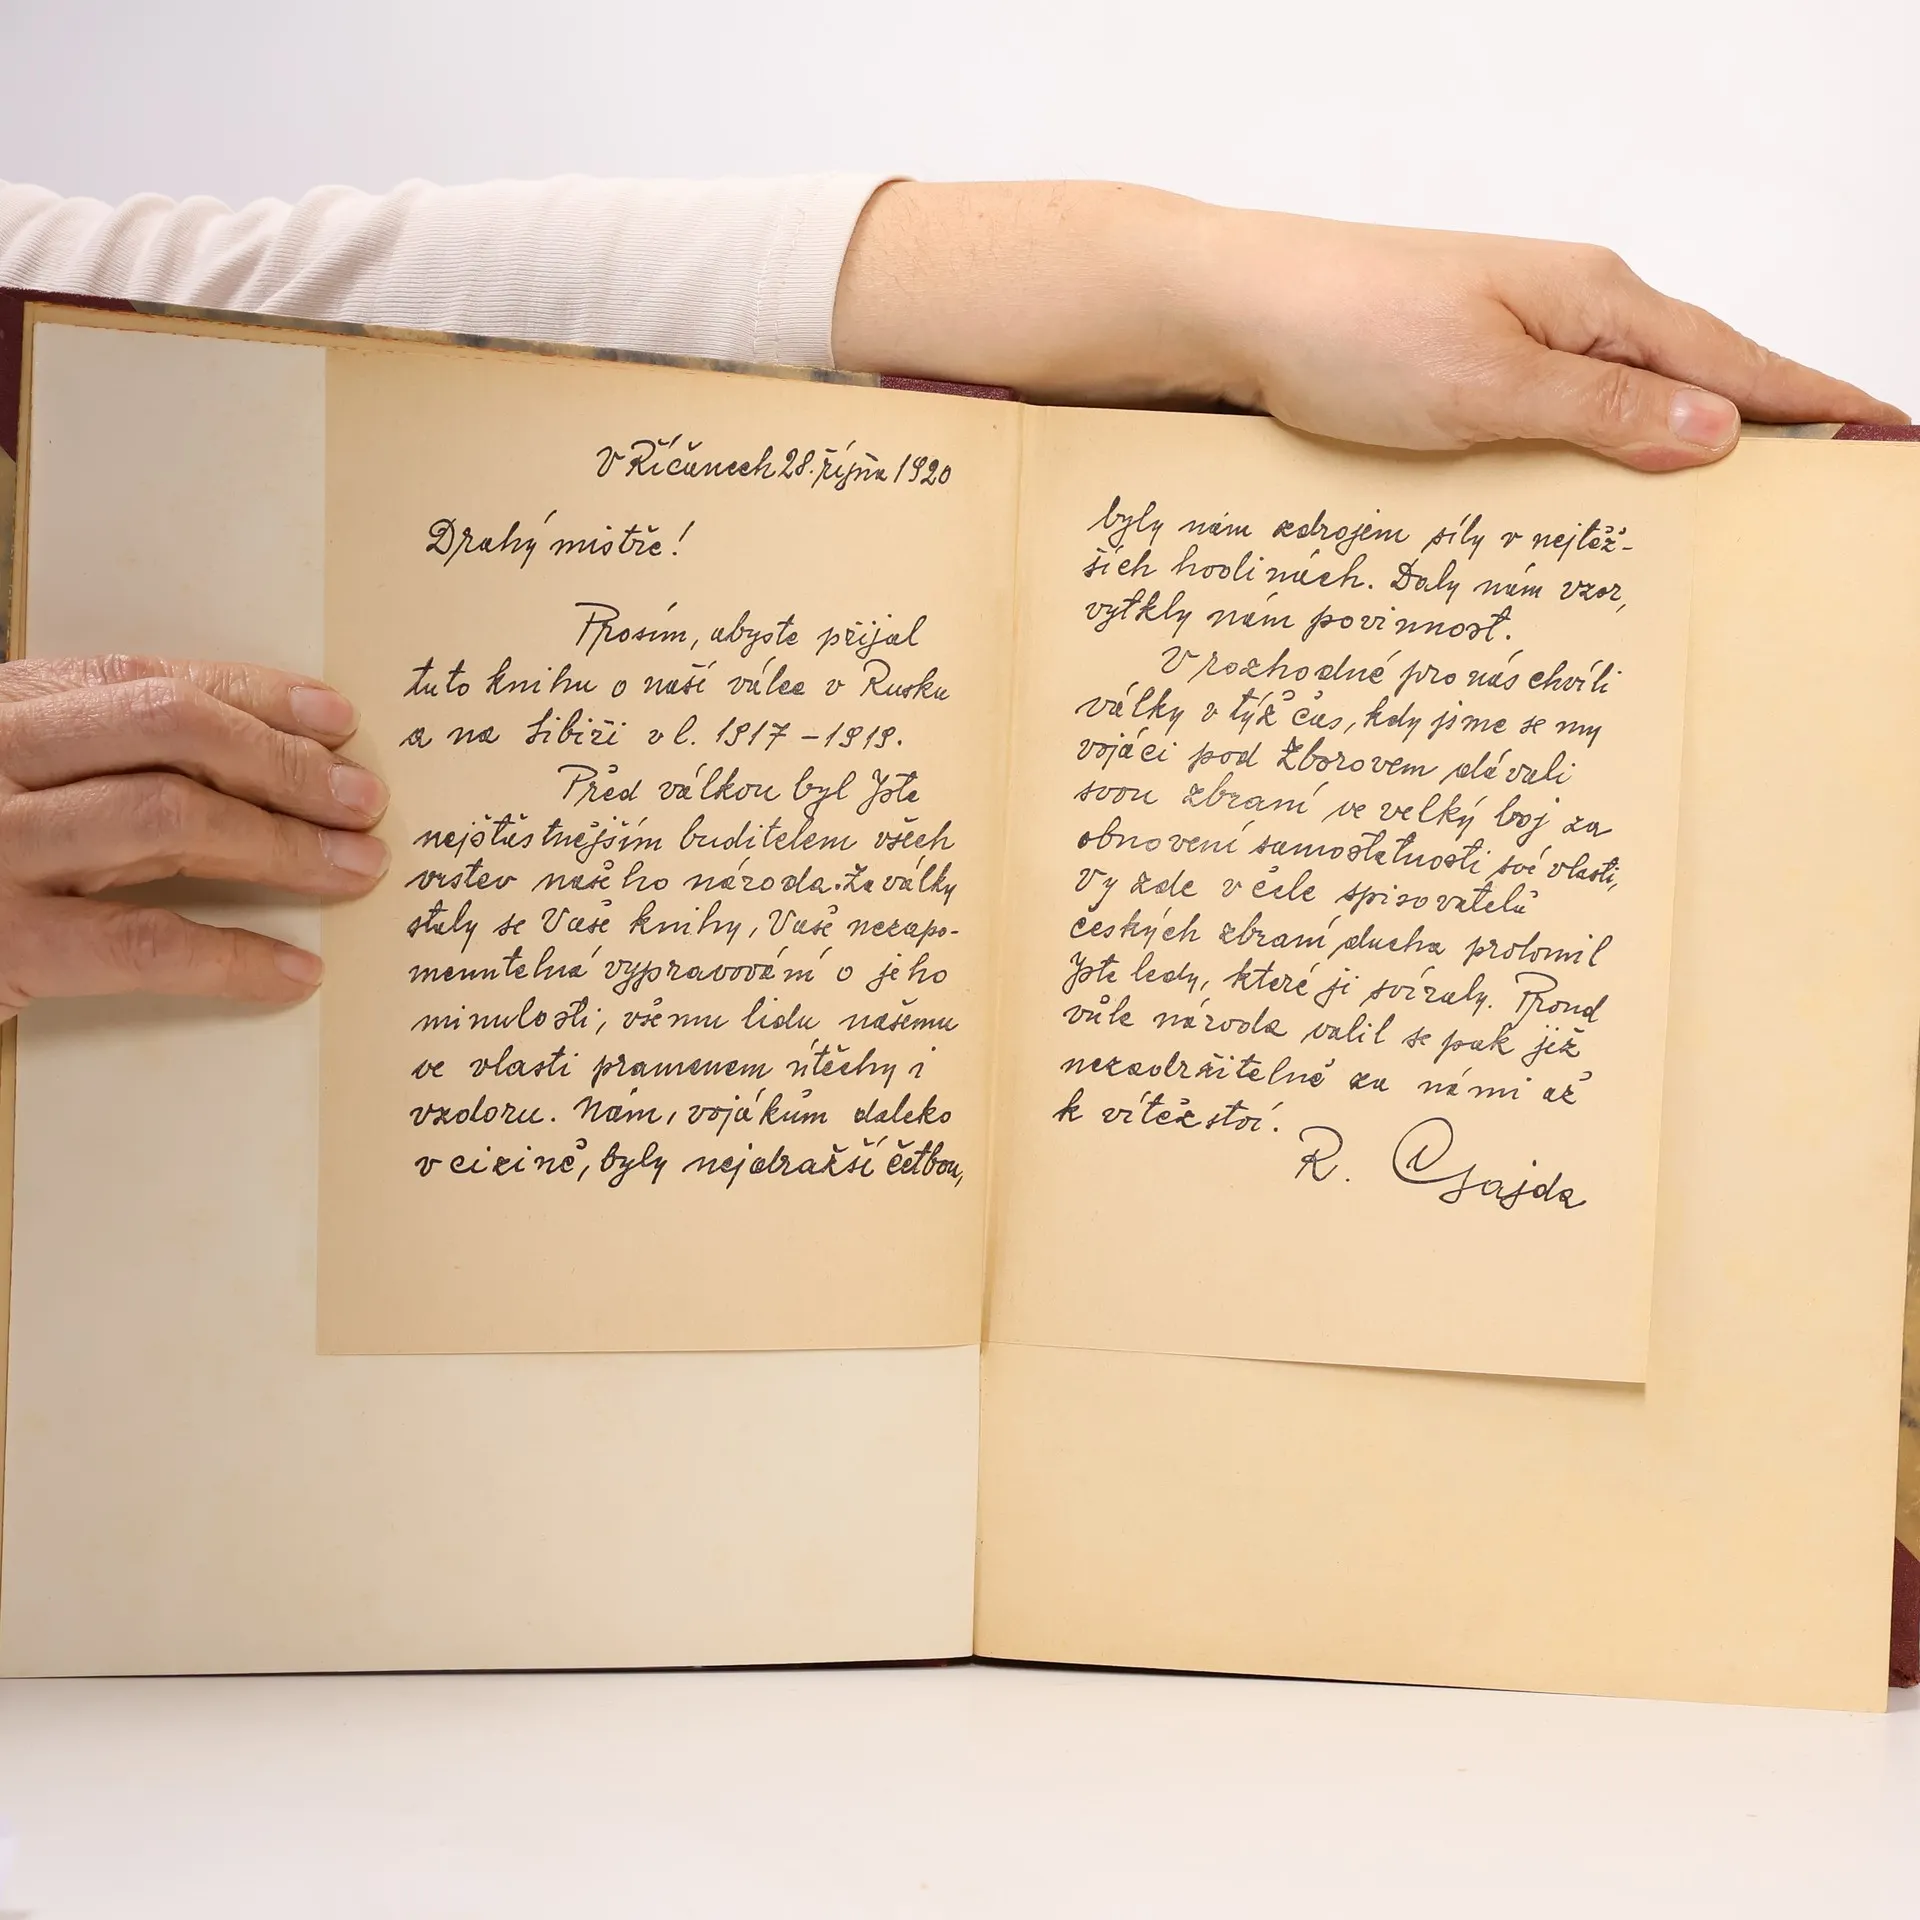 V Říčanech 28. října 1920
Drahý mistře!
Prosím, abyste přijal
tuto knihu o naší válce v Rusku
a na Sibiři v l. 1917 – 1919.
Před válkou byl Jste
nejšťastnějším buditelem všech
vrstev našeho národa. Za války
staly se Vaše knihy, Vaše nezapo-
menutelná vypravování o jeho
minulosti, všemu lidu našemu
ve vlasti pramenem útěchy i
vzdoru. Nám, vojákům daleko
v cizině, byly nejdražší četbou,
byly nám zdrojem síly v nejtěž-
ších hodinách. Daly nám vzor,
vytkly nám povinnost.
V rozhodné pro nás chvíli
války v týž čas, kdy jsme se my
vojáci pod Zborovem dávali
svou zbraní ve velký boj za
obnovení samostatnosti své vlasti,
Vy zde v čele spisovatelů
českých zbraní ducha prolomil
Jste ledy, které ji svíraly. Proud
vůle národa valil se pak již
nezadržitelně za námi až
k vítězství.
R. Gajda